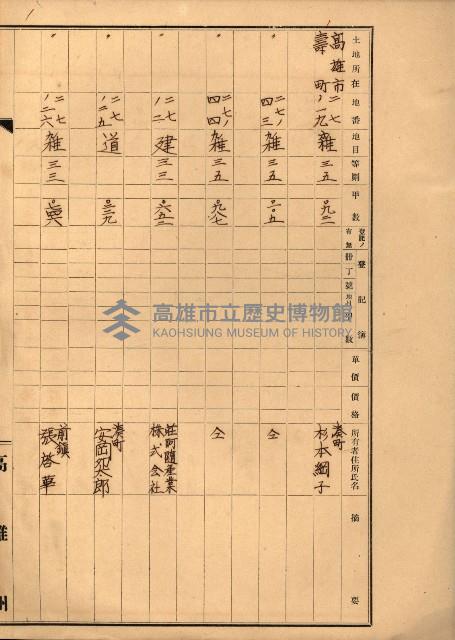 土地所在 地番 地目 等則 甲数 登記ノ有無 登記簿 冊丁號 地引 甲数 單價 價格 所有者住所氏名 摘要
高雄市壽町 二七ノ一九 雑 三五 〇九二 湊町 杉本綱子
〃 二七ノ四三 雑 三五 仝
〃 二七ノ四四 雑 三五 仝
〃 二七ノ一二 建 三三 〇六五二 莊阿隨產業株式會社
〃 二七ノ一二五 道 湊町
〃 二七ノ一二六 雑 三三 前鎮 張啓華
高雄州
高雄市立歷史博物館
KAOHSIUNG MUSEUM OF HISTORY